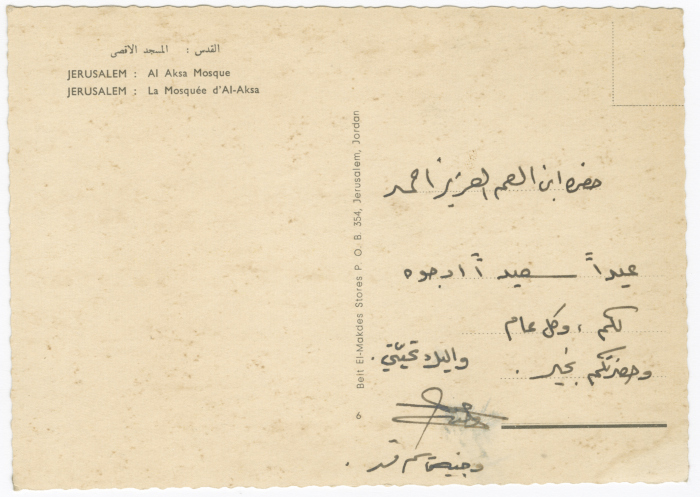 القدس : المسجد الاقصى
JERUSALEM : Al Aksa Mosque
JERUSALEM : La Mosquée d'Al-Aksa
Beit El-Makdes Stores P. O. B. 354, Jerusalem, Jordan
6
حضرة ابن العم العزيز احمد
عيداً سعيداً ارجوه
لكم ، وكل عام
وحضرتكم بخير . واليك تحيّتي .